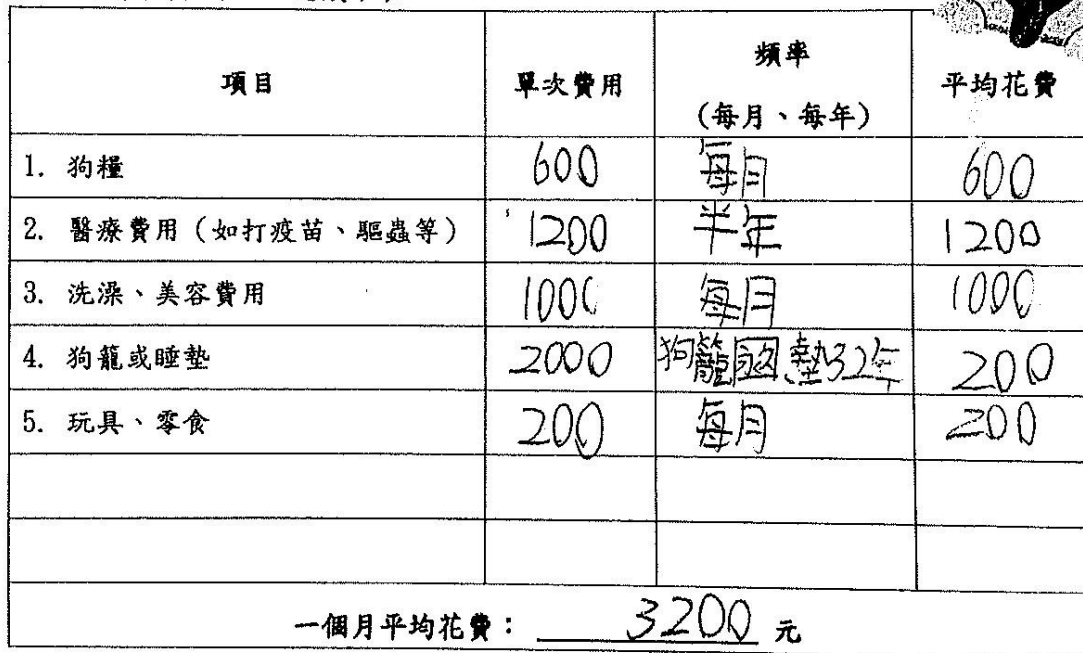 項目 單次費用 頻率 平均花費
(每月、每年)
1. 狗糧 600 每月 600
2. 醫療費用（如打疫苗、驅蟲等） 1200 半年 1200
3. 洗澡、美容費用 1000 每月 1000
4. 狗籠或睡墊 2000 狗籠 墊 2年 200
5. 玩具、零食 200 每月 200
一個月平均花費： 3200 元